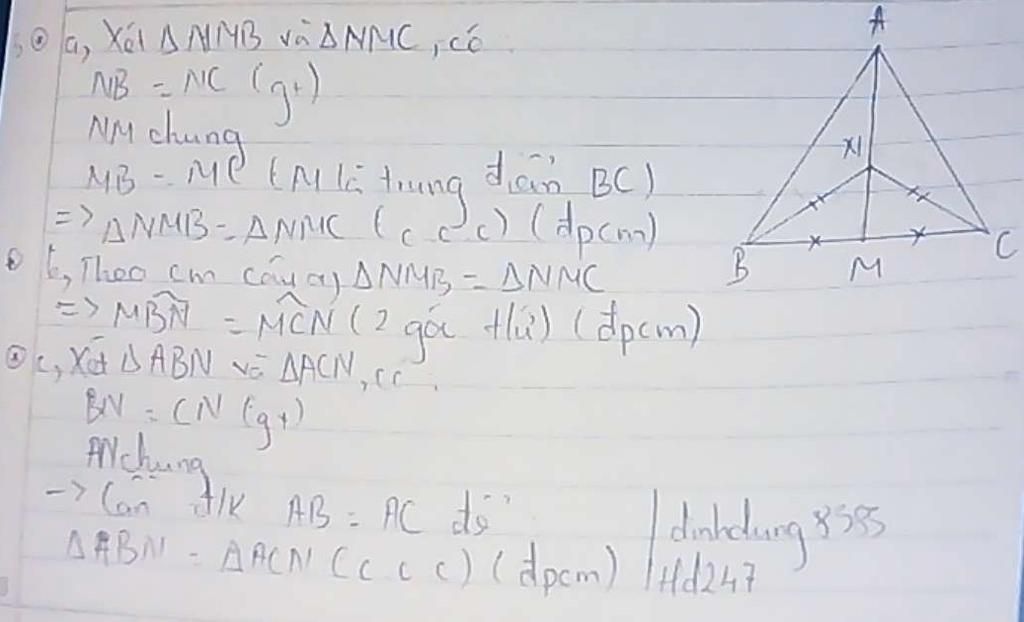 a, Xét ΔNMB và ΔNMC, có
NB = NC (gt)
NM chung
MB = MC (M là trung điểm BC)
=> ΔNMB = ΔNMC (c c c) (đpcm)
b, Theo cm câu a, ΔNMB = ΔNMC
=> MB̂N = MĈN (2 góc t/ứ) (đpcm)
c, Xét ΔABN và ΔACN, có:
BN = CN (gt)
AN chung
-> Cần đ/k AB = AC để
ΔABN = ΔACN (c c c) (đpcm)
dinhdung8585
Hd247
A
N
B
M
C